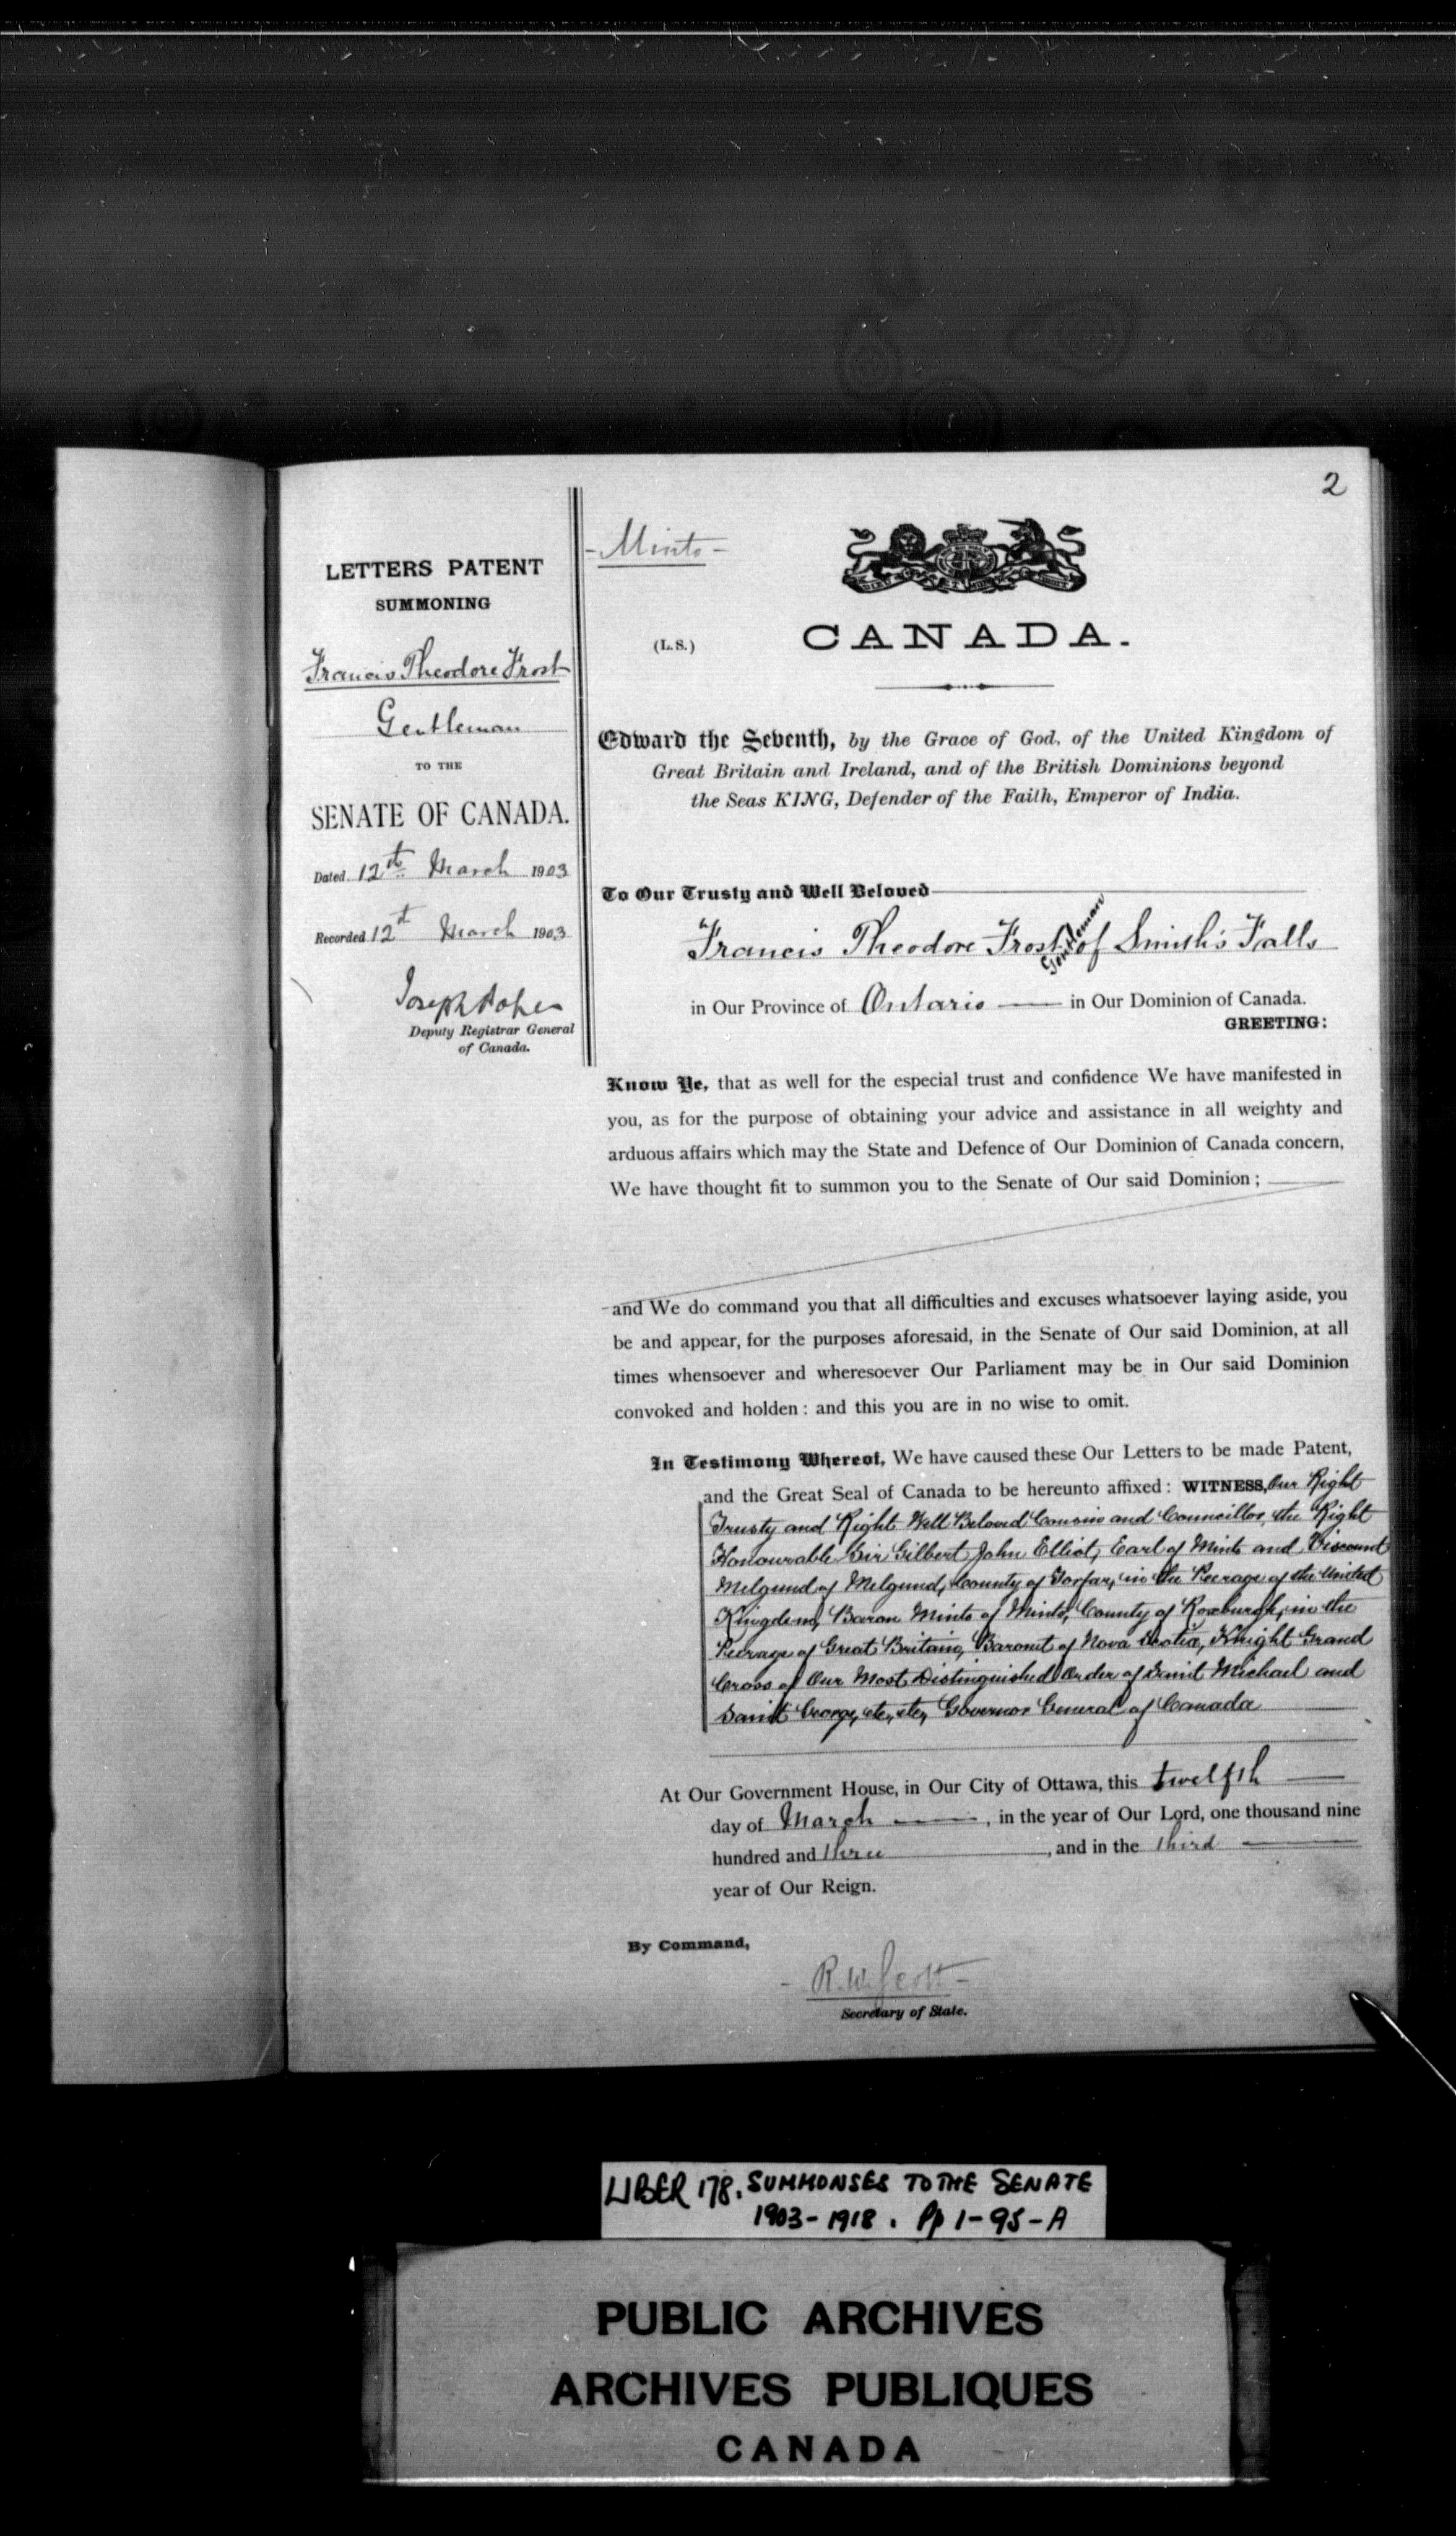 2
LETTERS PATENT
SUMMONING
Francis Theodore Frost
Gentleman
TO THE
SENATE OF CANADA.
Dated 12th March 1903
Recorded 12th March 1903
Joseph Pope
Deputy Registrar General
of Canada.
- Minto -
(L.S.)
CANADA.
Edward the Seventh, by the Grace of God, of the United Kingdom of
Great Britain and Ireland, and of the British Dominions beyond
the Seas KING, Defender of the Faith, Emperor of India.
To Our Trusty and Well Beloved
Francis Theodore Frost Gentleman of Smith's Falls
in Our Province of Ontario — in Our Dominion of Canada.
GREETING:
Know Ye, that as well for the especial trust and confidence We have manifested in
you, as for the purpose of obtaining your advice and assistance in all weighty and
arduous affairs which may the State and Defence of Our Dominion of Canada concern,
We have thought fit to summon you to the Senate of Our said Dominion;
and We do command you that all difficulties and excuses whatsoever laying aside, you
be and appear, for the purposes aforesaid, in the Senate of Our said Dominion, at all
times whensoever and wheresoever Our Parliament may be in Our said Dominion
convoked and holden: and this you are in no wise to omit.
In Testimony Whereof, We have caused these Our Letters to be made Patent,
and the Great Seal of Canada to be hereunto affixed: WITNESS, Our Right
Trusty and Right Well Beloved Cousin and Councillor, the Right
Honourable Sir Gilbert John Elliot, Earl of Minto and Viscount
Melgund of Melgund, County of Forfar, in the Peerage of the United
Kingdom, Baron Minto of Minto, County of Roxburgh, in the
Peerage of Great Britain, Baronet of Nova Scotia, Knight Grand
Cross of Our Most Distinguished Order of Saint Michael and
Saint George, etc., etc., Governor General of Canada
At Our Government House, in Our City of Ottawa, this twelfth
day of March —, in the year of Our Lord, one thousand nine
hundred and three, and in the third
year of Our Reign.
By Command,
- R. W. Scott -
Secretary of State.
LIBER 178. SUMMONSES TO THE SENATE
1903-1918. Pp 1-95-A
PUBLIC ARCHIVES
ARCHIVES PUBLIQUES
CANADA